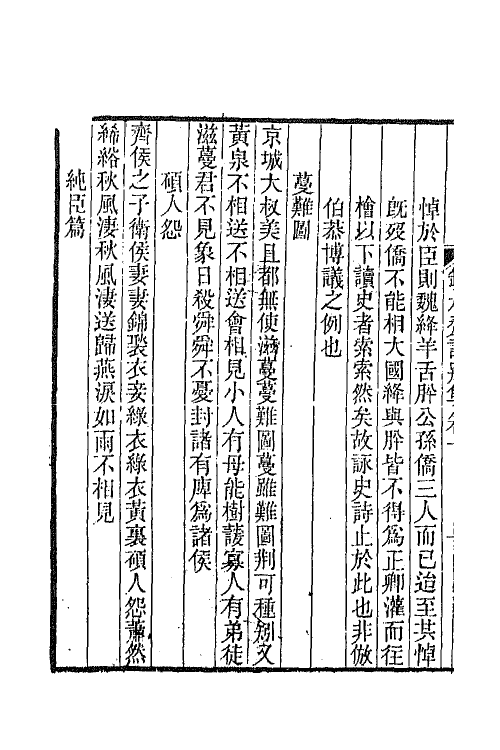 悼於臣則魏絳羊舌肸公孫僑三人而已迨至其悼
旣歿僑不能相大國絳與肸皆不得爲正卿灌而往
檜以下讀史者索索然矣故詠史詩止於此也非倣
伯恭博議之例也
蔓難圖
京城大叔美且都無使滋蔓蔓難圖蔓雖難圖荆可種剜又
黃泉不相送不相送會相見小人有母能樹諼寡人有弟徒
滋蔓君不見象日殺舜舜不憂封諸有庳爲諸侯
碩人怨
齊侯之子衛侯妻妻錦褧衣妾綠衣綠衣黃裏碩人怨蕭然
絺綌秋風淒秋風淒送歸燕淚如雨不相見
純臣篇